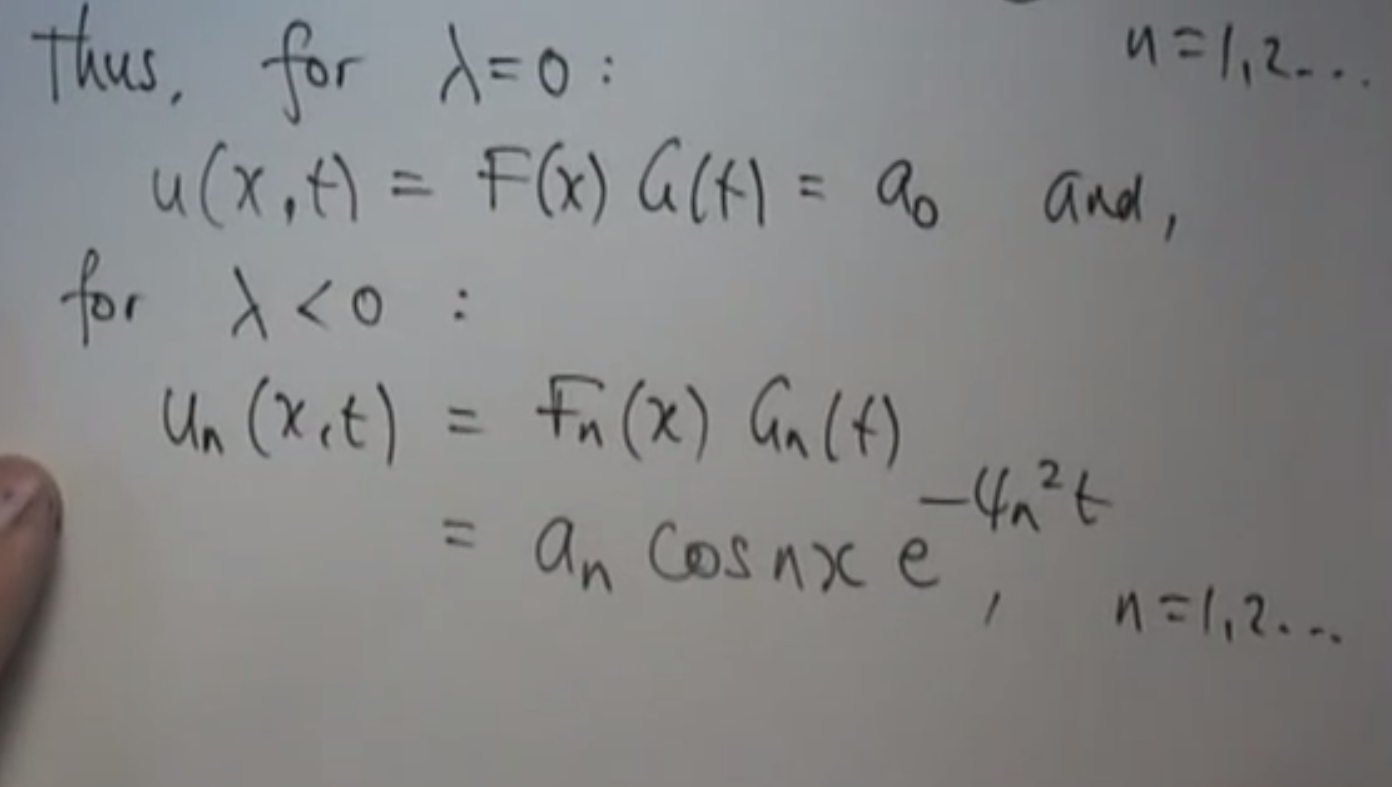 Thus, for λ=0 : n=1,2...
u(x,t) = F(x) G(t) = a₀ and,
for λ<0 :
uₙ(x,t) = Fₙ(x) Gₙ(t)
= aₙ cosnx e^{-4n²t}, n=1,2...